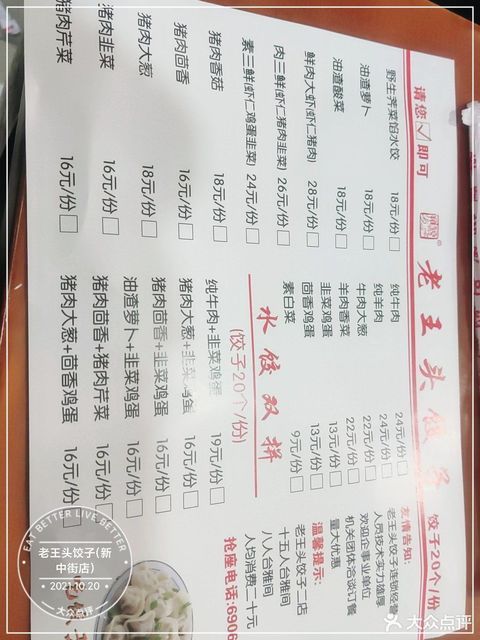 请您☑即可
老王头饺子
饺子20个/份
野生荠菜馅水饺 18元/份□
油渣萝卜 18元/份□
油渣酸菜 18元/份□
鲜肉大虾(虾仁猪肉) 28元/份□
肉三鲜(虾仁猪肉韭菜) 26元/份□
素三鲜(虾仁鸡蛋韭菜) 24元/份□
猪肉香菇 18元/份□
猪肉茴香 16元/份□
猪肉大葱 18元/份□
猪肉韭菜 16元/份□
猪肉芹菜 16元/份□
纯牛肉 24元/份□
纯羊肉 24元/份□
牛肉大葱 22元/份□
羊肉香菜 22元/份□
韭菜鸡蛋 13元/份□
茴香鸡蛋 13元/份□
素白菜 9元/份□
水饺双拼
(饺子20个/份)
纯牛肉+韭菜鸡蛋 19元/份□
猪肉大葱+韭菜鸡蛋 16元/份□
猪肉茴香+韭菜鸡蛋 16元/份□
油渣萝卜+韭菜鸡蛋 16元/份□
猪肉茴香+猪肉芹菜 16元/份□
猪肉大葱+茴香鸡蛋 16元/份□
友情告知:
老王头饺子连锁经营
人员技术实力雄厚
欢迎企事业单位
机关团体洽谈订餐
量大优惠
温馨提示:
老王头饺子二店
十五人台雅间
八人台雅间
人均消费二十元
抢座电话:6906
EAT BETTER LIVE BETTER
老王头饺子(新中街店)
2021.10.20
大众点评
大众点评